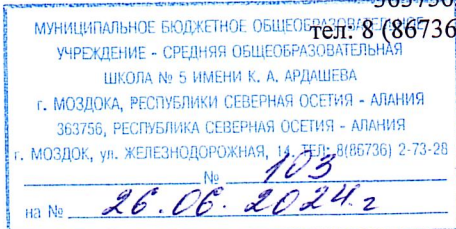 363756
тел: 8 (86736
МУНИЦИПАЛЬНОЕ БЮДЖЕТНОЕ ОБЩЕОБРАЗОВАТЕЛЬНОЕ
УЧРЕЖДЕНИЕ - СРЕДНЯЯ ОБЩЕОБРАЗОВАТЕЛЬНАЯ
ШКОЛА № 5 ИМЕНИ К. А. АРДАШЕВА
г. МОЗДОКА, РЕСПУБЛИКИ СЕВЕРНАЯ ОСЕТИЯ - АЛАНИЯ
363756, РЕСПУБЛИКА СЕВЕРНАЯ ОСЕТИЯ - АЛАНИЯ
г. МОЗДОК, ул. ЖЕЛЕЗНОДОРОЖНАЯ, 14 ТЕЛ: 8(86736) 2-73-28
№ 103
на № 26.06.2024 г